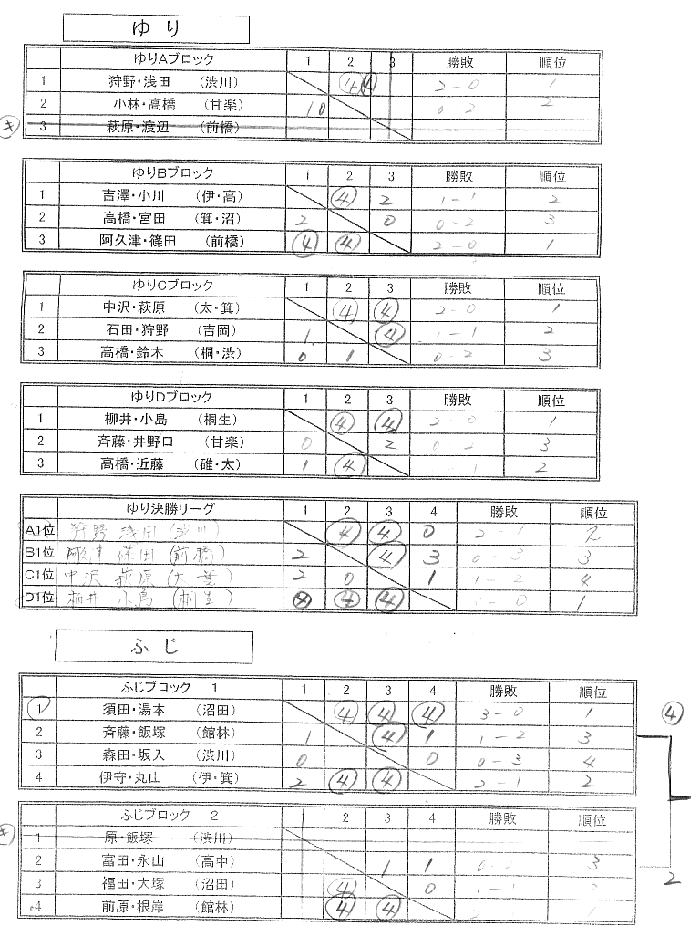 ゆり
ゆりAブロック 1 2 3 勝敗 順位
1 狩野・浅田 (渋川) ④ 2-0 1
2 小林・高橋 (甘楽) 0-2 2
3 萩原・渡辺 (前橋)
ゆりBブロック 1 2 3 勝敗 順位
1 吉澤・小川 (伊・高) ④ 2 1-1 2
2 高橋・宮田 (箕・沼) 2 0 0-2 3
3 阿久津・篠田 (前橋) ④ ④ 2-0 1
ゆりCブロック 1 2 3 勝敗 順位
1 中沢・萩原 (太・箕) ④ ④ 2-0 1
2 石田・狩野 (吉岡) 1 ④ 1-1 2
3 高橋・鈴木 (桐・渋) 0 1 0-2 3
ゆりDブロック 1 2 3 勝敗 順位
1 柳井・小島 (桐生) ④ ④ 2 0 1
2 斉藤・井野口 (甘楽) 0 2 0-2 3
3 高橋・近藤 (碓・太) 1 ④ 1 2
ゆり決勝リーグ 1 2 3 4 勝敗 順位
A1位 狩野 浅田 (渋川) ④ ④ 0 2-1 2
B1位 (前橋) 2 ④ 3 3
C1位 中沢 萩原 2 0 1 1-2
D1位 柳井 小島 (桐生) ④ ④ 0 1
ふじ
ふじブロック 1 1 2 3 4 勝敗 順位
① 須田・湯本 (沼田) ④ ④ ④ 3-0 1 ④
2 斉藤・飯塚 (館林) 1 ④ 1 1-2 3
3 森田・坂入 (渋川) 0 0 0-3 4
4 伊守・丸山 (伊・箕) 2 ④ ④ 2-1 2
ふじブロック 2 2 3 4 勝敗 順位
1 原・飯塚 (渋川)
2 富田・永山 (高中) 1 1 3
3 福田・大塚 (沼田) ④ 0 1-1 2
4 前原・根岸 (館林) ④ ④ 1